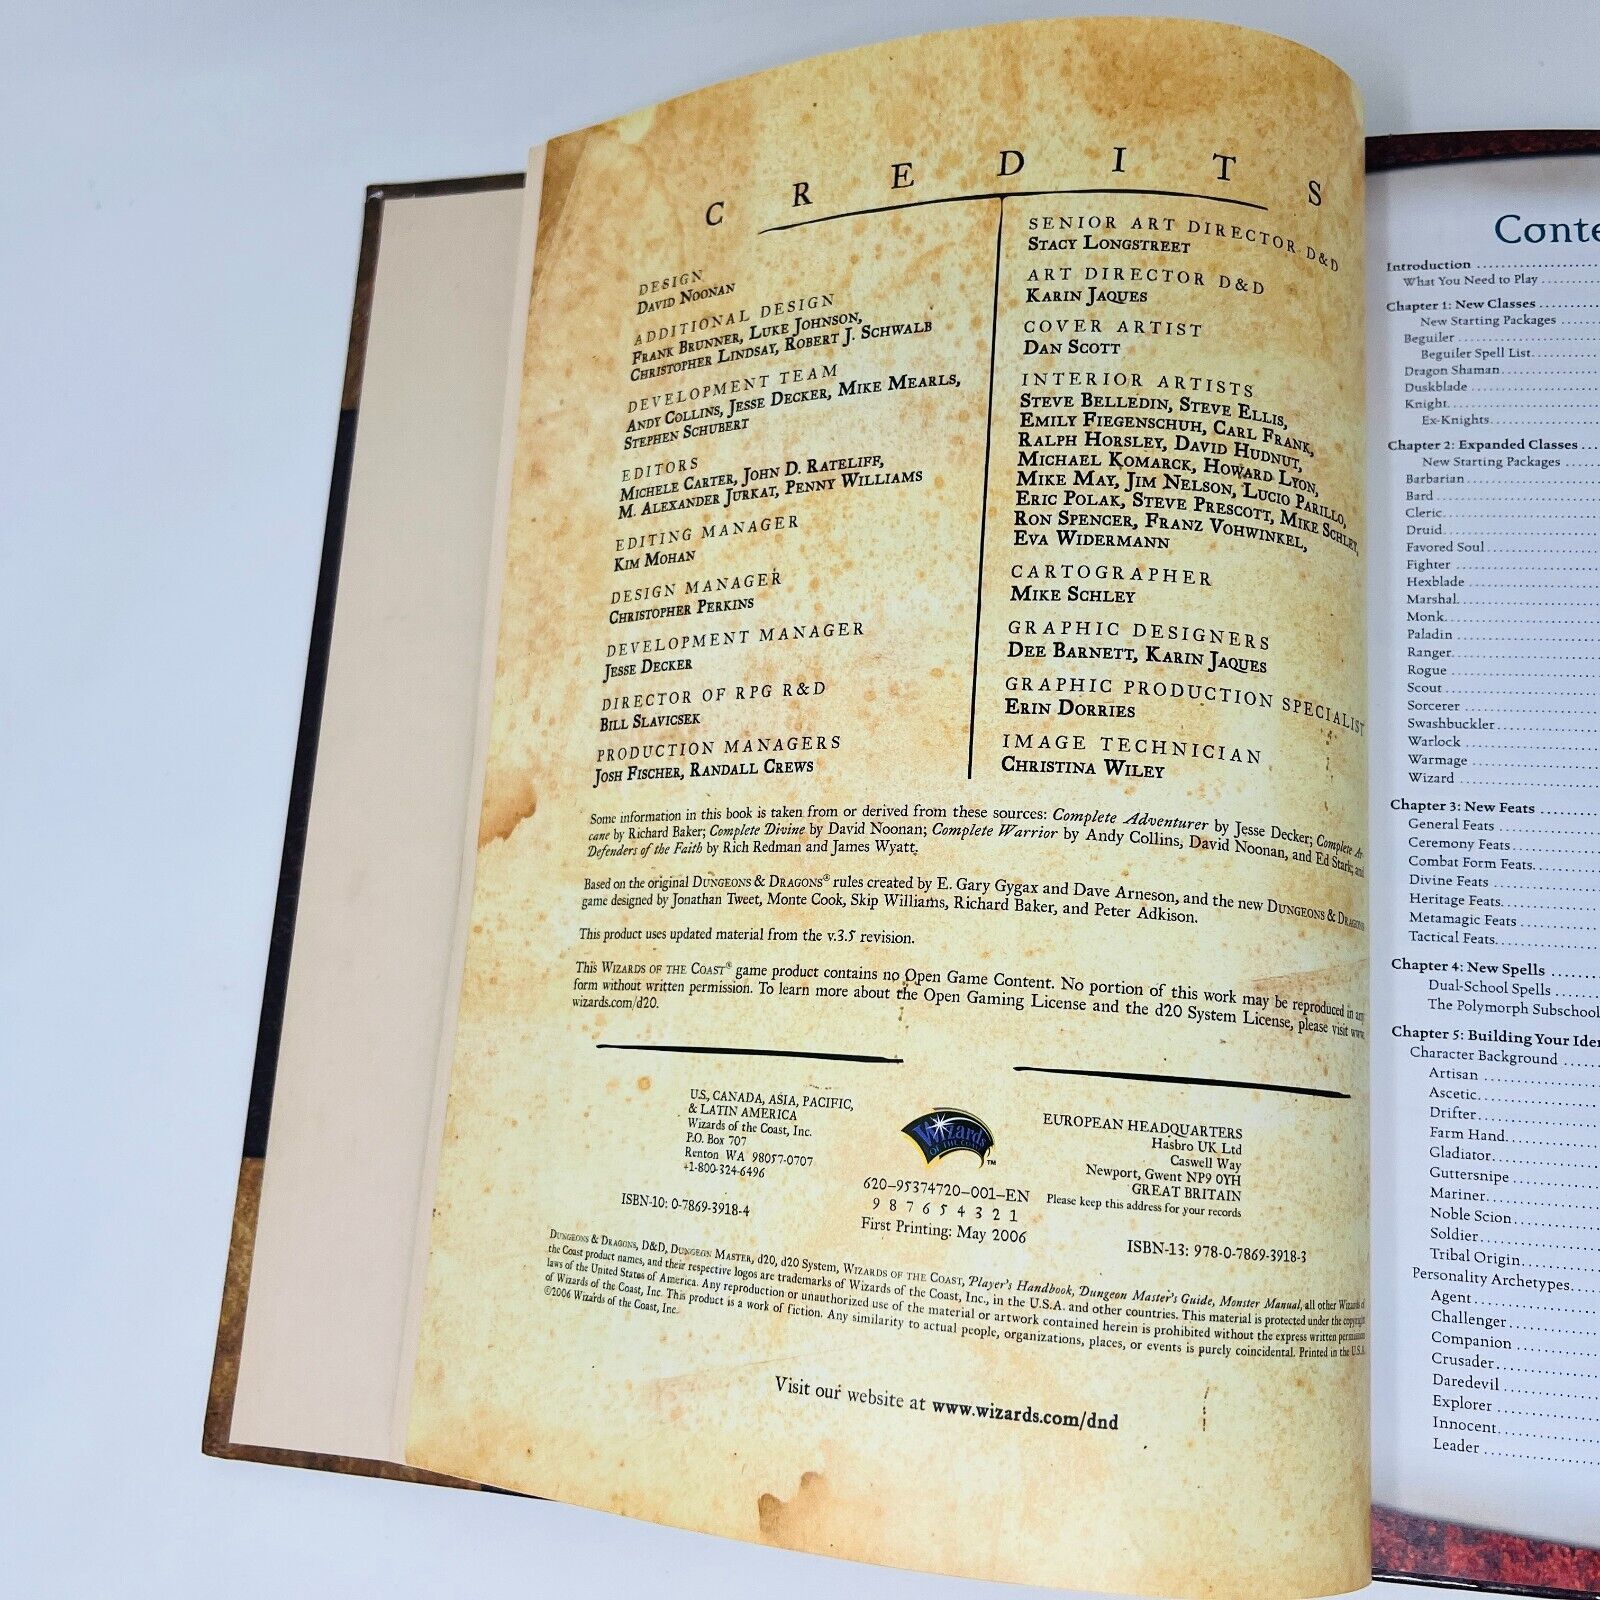 CREDITS
DESIGN
DAVID NOONAN
ADDITIONAL DESIGN
FRANK BRUNNER, LUKE JOHNSON,
CHRISTOPHER LINDSAY, ROBERT J. SCHWALB
DEVELOPMENT TEAM
ANDY COLLINS, JESSE DECKER, MIKE MEARLS,
STEPHEN SCHUBERT
EDITORS
MICHELE CARTER, JOHN D. RATELIFF,
M. ALEXANDER JURKAT, PENNY WILLIAMS
EDITING MANAGER
KIM MOHAN
DESIGN MANAGER
CHRISTOPHER PERKINS
DEVELOPMENT MANAGER
JESSE DECKER
DIRECTOR OF RPG R&D
BILL SLAVICSEK
PRODUCTION MANAGERS
JOSH FISCHER, RANDALL CREWS
SENIOR ART DIRECTOR D&D
STACY LONGSTREET
ART DIRECTOR D&D
KARIN JAQUES
COVER ARTIST
DAN SCOTT
INTERIOR ARTISTS
STEVE BELLEDIN, STEVE ELLIS,
EMILY FIEGENSCHUH, CARL FRANK,
RALPH HORSLEY, DAVID HUDNUT,
MICHAEL KOMARCK, HOWARD LYON,
MIKE MAY, JIM NELSON, LUCIO PARILLO,
ERIC POLAK, STEVE PRESCOTT, MIKE SCHLEY,
RON SPENCER, FRANZ VOHWINKEL,
EVA WIDERMANN
CARTOGRAPHER
MIKE SCHLEY
GRAPHIC DESIGNERS
DEE BARNETT, KARIN JAQUES
GRAPHIC PRODUCTION SPECIALIST
ERIN DORRIES
IMAGE TECHNICIAN
CHRISTINA WILEY
Some information in this book is taken from or derived from these sources: Complete Adventurer by Jesse Decker; Complete Ar-
cane by Richard Baker; Complete Divine by David Noonan; Complete Warrior by Andy Collins, David Noonan, and Ed Stark; and
Defenders of the Faith by Rich Redman and James Wyatt.
Based on the original DUNGEONS & DRAGONS® rules created by E. Gary Gygax and Dave Arneson, and the new DUNGEONS & DRAGONS
game designed by Jonathan Tweet, Monte Cook, Skip Williams, Richard Baker, and Peter Adkison.
This product uses updated material from the v.3.5 revision.
This WIZARDS OF THE COAST® game product contains no Open Game Content. No portion of this work may be reproduced in any
form without written permission. To learn more about the Open Gaming License and the d20 System License, please visit www.
wizards.com/d20.
U.S., CANADA, ASIA, PACIFIC,
& LATIN AMERICA
Wizards of the Coast, Inc.
P.O. Box 707
Renton WA 98057-0707
+1-800-324-6496
ISBN-10: 0-7869-3918-4
Wizards
OF THE COAST
TM
620–95374720–001–EN
9 8 7 6 5 4 3 2 1
First Printing: May 2006
EUROPEAN HEADQUARTERS
Hasbro UK Ltd
Caswell Way
Newport, Gwent NP9 0YH
GREAT BRITAIN
Please keep this address for your records
ISBN-13: 978-0-7869-3918-3
DUNGEONS & DRAGONS, D&D, DUNGEON MASTER, d20, d20 System, WIZARDS OF THE COAST, Player's Handbook, Dungeon Master's Guide, Monster Manual, all other Wizards of
the Coast product names, and their respective logos are trademarks of Wizards of the Coast, Inc., in the U.S.A. and other countries. This material is protected under the copyright
laws of the United States of America. Any reproduction or unauthorized use of the material or artwork contained herein is prohibited without the express written permission
of Wizards of the Coast, Inc. This product is a work of fiction. Any similarity to actual people, organizations, places, or events is purely coincidental. Printed in the U.S.A.
©2006 Wizards of the Coast, Inc.
Visit our website at www.wizards.com/dnd
Conte
Introduction
What You Need to Play
Chapter 1: New Classes
New Starting Packages
Beguiler
Beguiler Spell List
Dragon Shaman
Duskblade
Knight
Ex-Knights
Chapter 2: Expanded Classes
New Starting Packages
Barbarian
Bard
Cleric
Druid
Favored Soul
Fighter
Hexblade
Marshal
Monk
Paladin
Ranger
Rogue
Scout
Sorcerer
Swashbuckler
Warlock
Warmage
Wizard
Chapter 3: New Feats
General Feats
Ceremony Feats
Combat Form Feats
Divine Feats
Heritage Feats
Metamagic Feats
Tactical Feats
Chapter 4: New Spells
Dual-School Spells
The Polymorph Subschool
Chapter 5: Building Your Iden
Character Background
Artisan
Ascetic
Drifter
Farm Hand
Gladiator
Guttersnipe
Mariner
Noble Scion
Soldier
Tribal Origin
Personality Archetypes
Agent
Challenger
Companion
Crusader
Daredevil
Explorer
Innocent
Leader